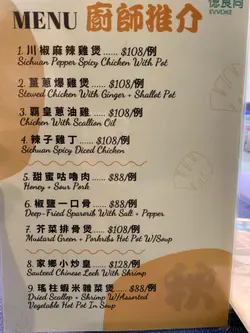 MENU 廚師推介
憶良同
EVVOKE
1. 川椒麻辣雞煲 ...... $108/例
Sichuan Pepper Spicy Chicken With Pot
2. 薑蔥爆雞煲 ...... $108/例
Stewed Chicken With Ginger + Shallot Pot
3. 霸皇蔥油雞 ...... $108/例
Chicken With Scallion Oil
4. 辣子雞丁 ...... $108/例
Sichuan Spicy Diced Chicken
5. 甜蜜咕嚕肉 ...... $88/例
Honey + Sour Pork
6. 椒鹽一口骨 ...... $88/例
Deep-Fried Sparerib With Salt + Pepper
7. 芥菜排骨煲 ...... $108/例
Mustard Green + Porkribs Hot Pot W/Soup
8. 家鄉小炒皇 ...... $128/例
Sauteed Chinese Leek With Shrimp
9. 瑤柱蝦米雜菜煲 ...... $88/例
Dried Scallop + Shrimp W/Assorted
Vegetable Hot Pot In Soup